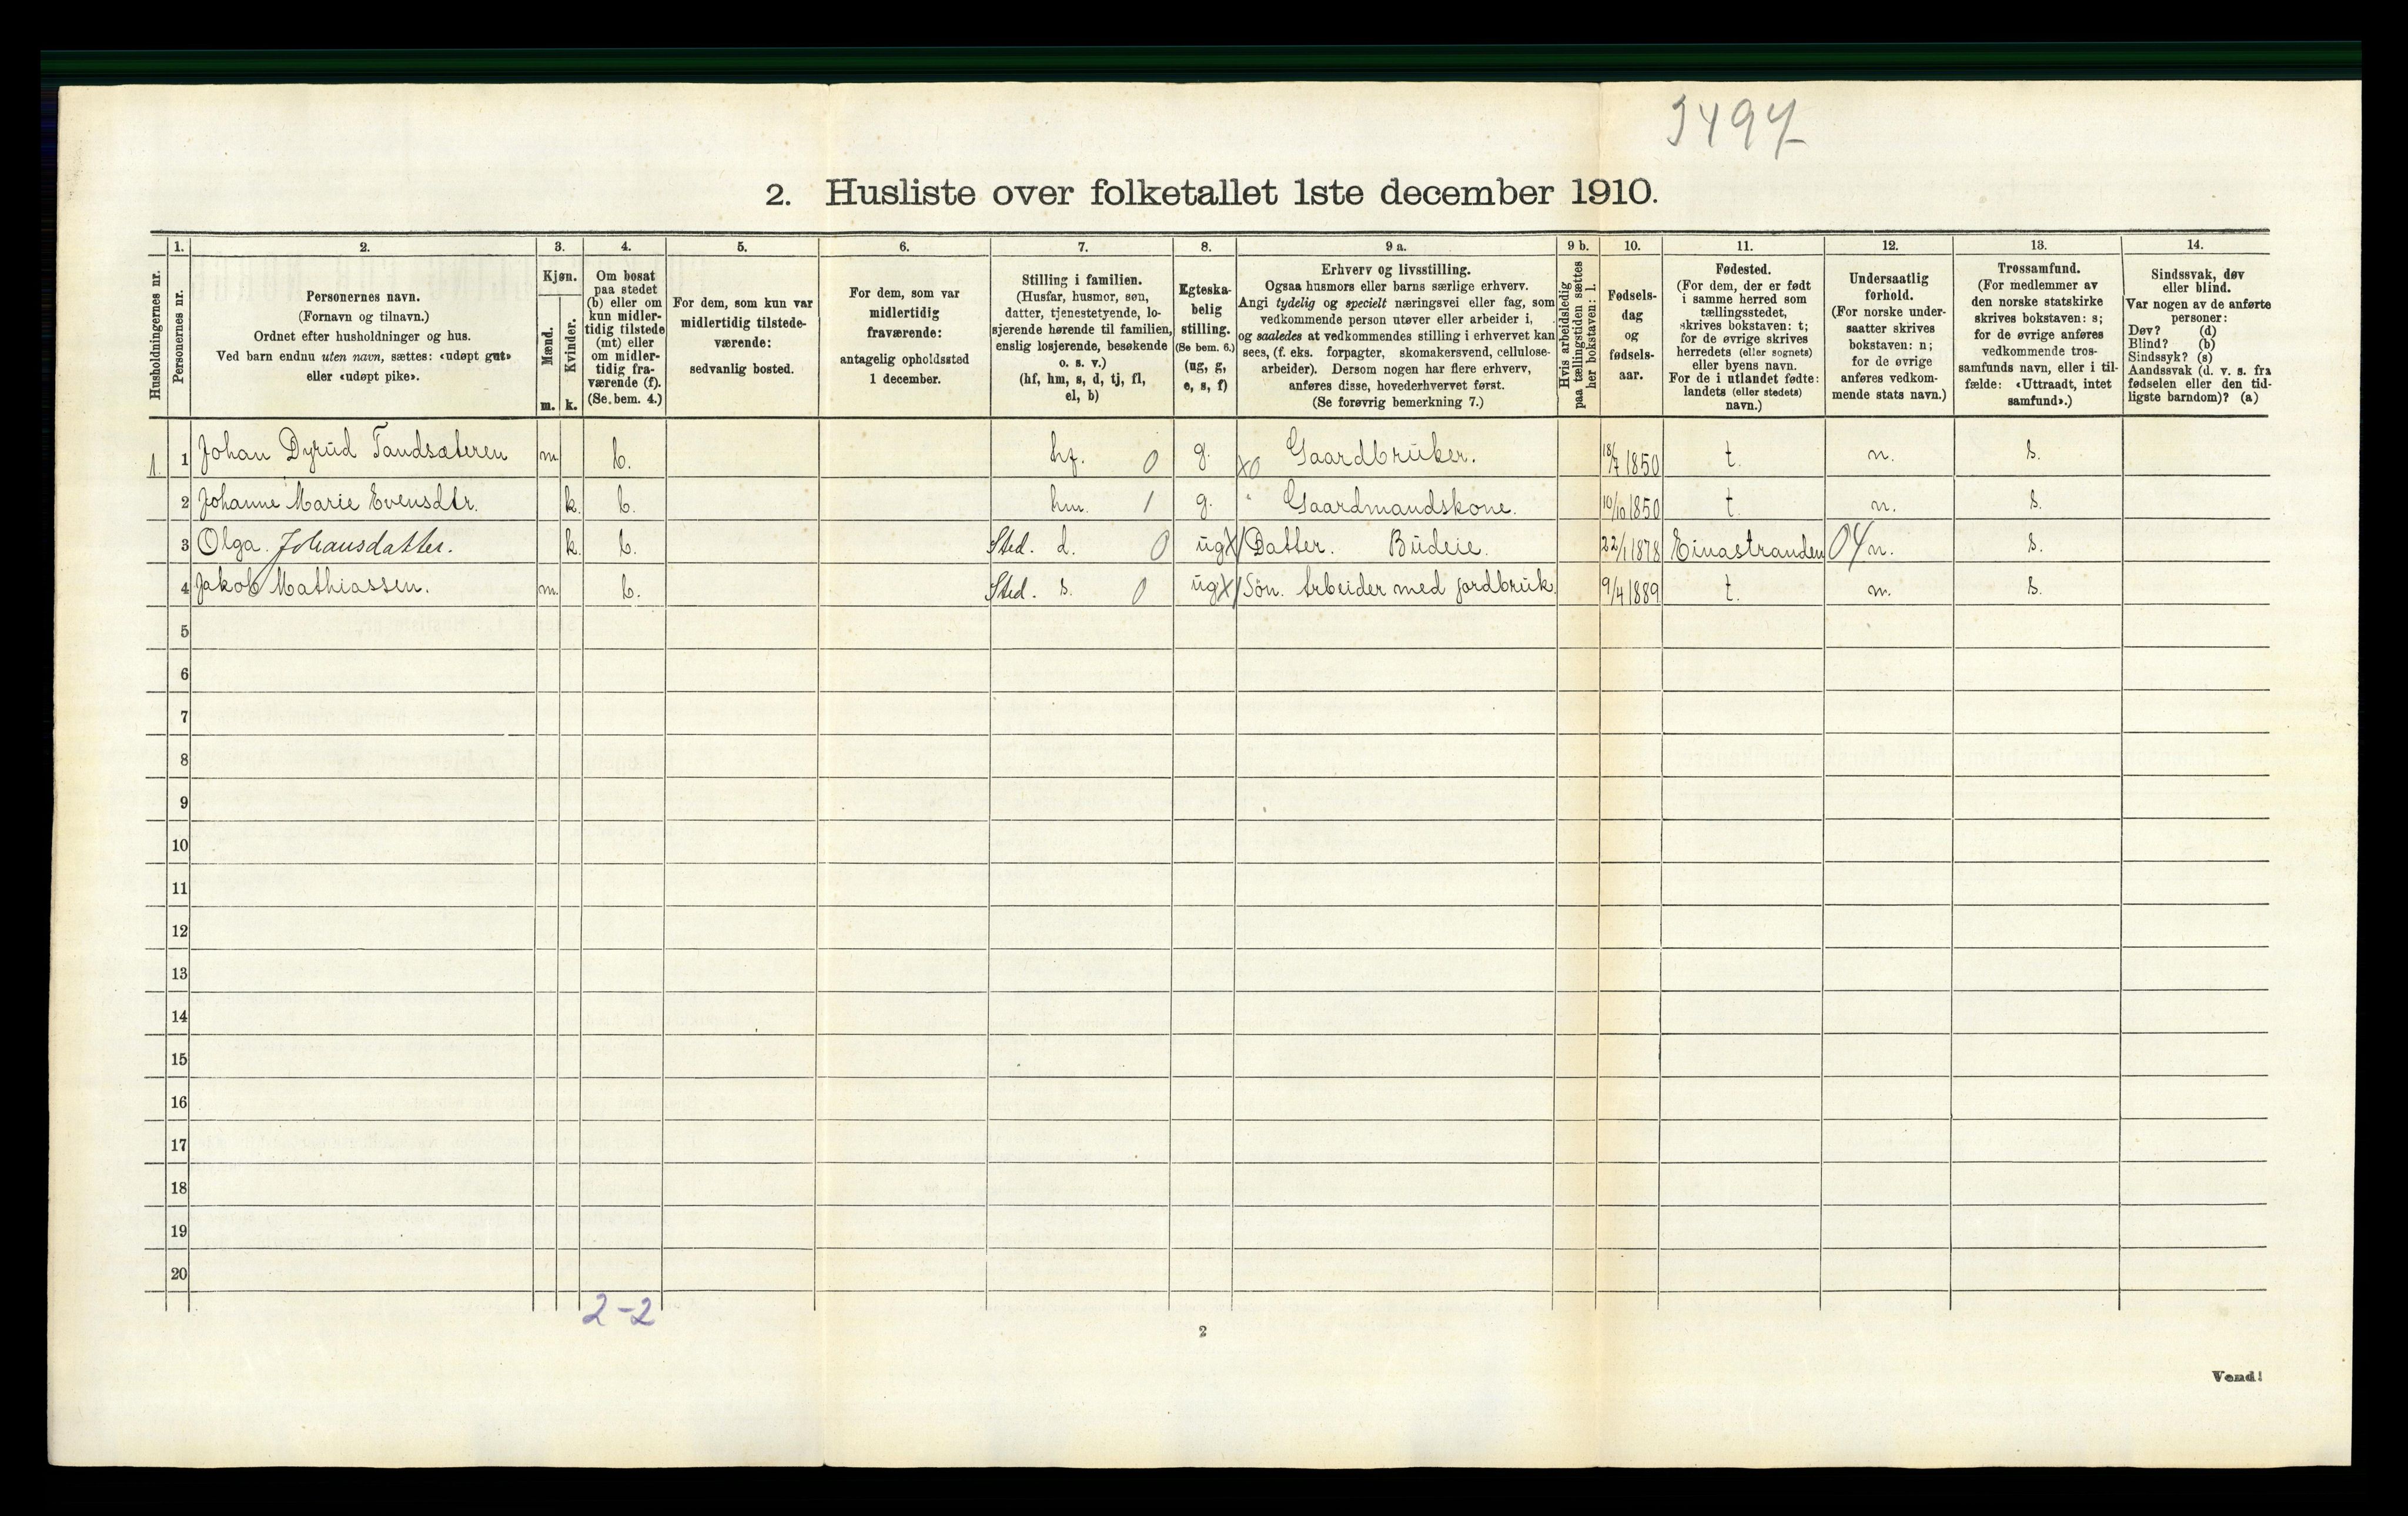 3497
2. Husliste over folketallet 1ste december 1910.
Husholdningernes nr.
1.
Personernes nr.
2.
Personernes navn.
(Fornavn og tilnavn.)
Ordnet efter husholdninger og hus.
Ved barn endnu uten navn, sættes: «udøpt gut»
eller «udøpt pike».
3.
Kjøn.
Mænd.
m.
Kvinder.
k.
4.
Om bosat
paa stedet
(b) eller om
kun midler-
tidig tilstede
(mt) eller
om midler-
tidig fra-
værende (f).
(Se bem. 4.)
5.
For dem, som kun var
midlertidig tilstede-
værende:
sedvanlig bosted.
6.
For dem, som var
midlertidig
fraværende:
antagelig opholdssted
1 december.
7.
Stilling i familien.
(Husfar, husmor, søn,
datter, tjenestetyende, lo-
sjerende hørende til familien,
enslig losjerende, besøkende
o. s. v.)
(hf, hm, s, d, tj, fl,
el, b)
8.
Egteska-
belig
stilling.
(Se bem. 6.)
(ug, g,
e, s, f)
9 a.
Erhverv og livsstilling.
Ogsaa husmors eller barns særlige erhverv.
Angi tydelig og specielt næringsvei eller fag, som
vedkommende person utøver eller arbeider i,
og saaledes at vedkommendes stilling i erhvervet kan
sees, (f. eks. forpagter, skomakersvend, cellulose-
arbeider). Dersom nogen har flere erhverv,
anføres disse, hovederhvervet først.
(Se forøvrig bemerkning 7.)
9 b.
Hvis arbeidsledig
paa tællingstiden sættes
her bokstaven: l.
10.
Fødsels-
dag
og
fødsels-
aar.
11.
Fødested.
(For dem, der er født
i samme herred som
tællingsstedet,
skrives bokstaven: t;
for de øvrige skrives
herredets (eller sognets)
eller byens navn.
For de i utlandet fødte:
landets (eller stedets)
navn.)
12.
Undersaatlig
forhold.
(For norske under-
saatter skrives
bokstaven: n;
for de øvrige
anføres vedkom-
mende stats navn.)
13.
Trossamfund.
(For medlemmer av
den norske statskirke
skrives bokstaven: s;
for de øvrige anføres
vedkommende tros-
samfunds navn, eller i til-
fælde: «Uttraadt, intet
samfund».)
14.
Sindssvak, døv
eller blind.
Var nogen av de anførte
personer:
Døv? (d)
Blind? (b)
Sindssyk? (s)
Aandssvak (d. v. s. fra
fødselen eller den tid-
ligste barndom)? (a)
1. 1 Johan Dyrud Tandsæteren m. b. hf. 0 g. X0 Gaardbruker. 18/7 1850 t. n. s.
2 Johanne Marie Evensdtr. k. b. hm. 1 g. " Gaardmandskone. 10/10 1850 t. n. s.
3 Olga. Johansdatter. k. b. Sted. d. 0 ug X/ Datter. Budeie. 22/1 1878 Einastranden 04 n. s.
4 Jakob Mathiassen. m. b. Sted. s. 0 ug X/ Søn. Arbeider med jordbruk. 9/4 1889 t. n. s.
5
6
7
8
9
10
11
12
13
14
15
16
17
18
19
20
2-2
2
Vend!